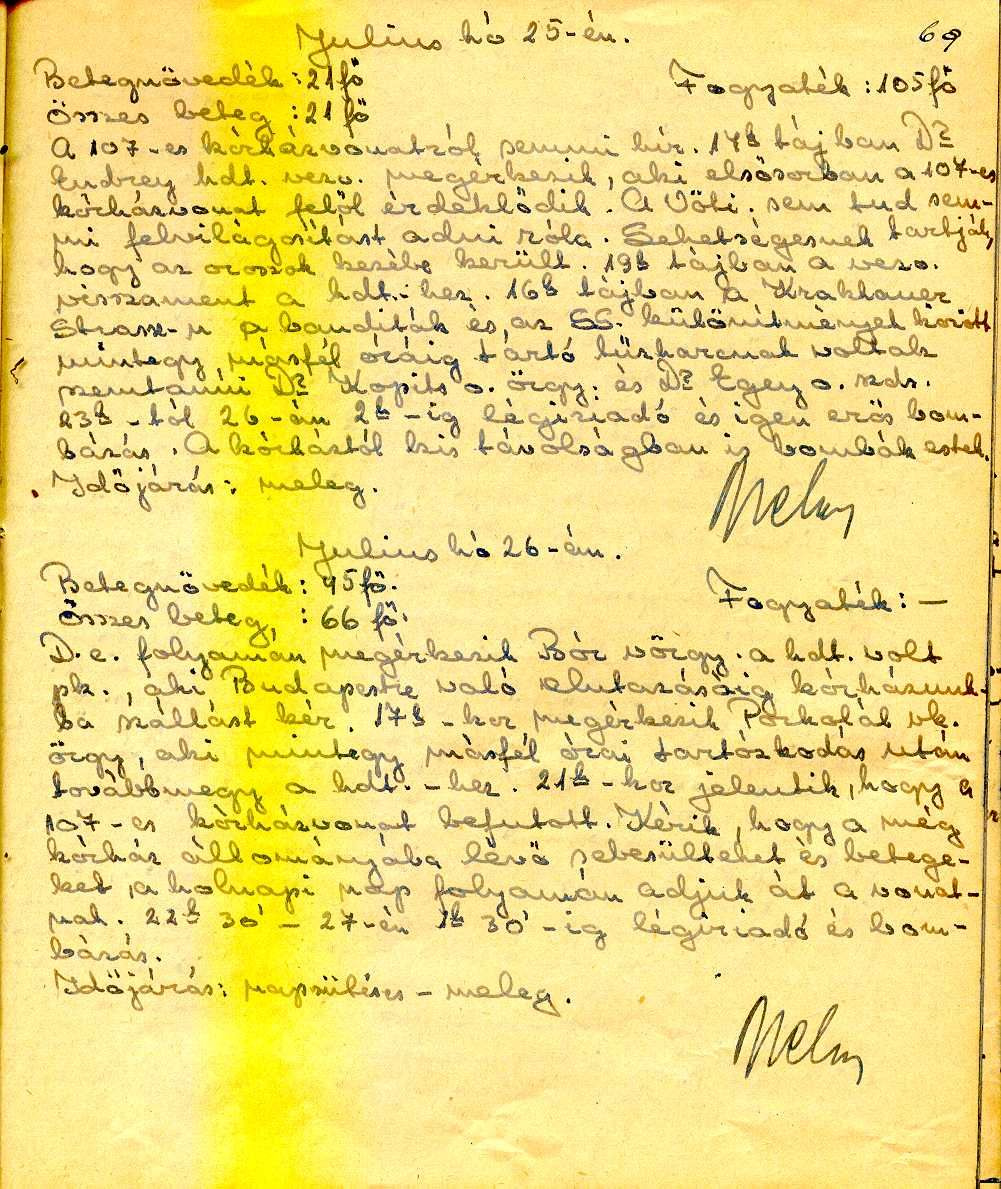 69
Julius hó 25-én.
Betegnövedék : 21 fő Fogyaték : 105 fő
Összes beteg : 21 fő
A 107-es kórházvonatról semmi hír. 17h tájban Dr
Endrey hdt. vezo. megérkezik, aki elsősorban a 107-es
kórházvonat felől érdeklődik. A Vöti. sem tud sem-
mi felvilágosítást adni róla. Lehetségesnek tartják,
hogy az oroszok kezébe került. 19h tájban a vezo.
visszament a hdt.-hez. 16h tájban a Krakhauer
Strasse-n a banditák és az SS. különítmények között
mintegy másfél óráig tartó tűzharcnak voltak
szemtanúi Dr Kopits o. örgy. és Dr Egey o. szds.
23h-tól 26-án 2h-ig légiriadó és igen erős bom-
bázás. A kórháztól kis távolságban is bombák estek.
Időjárás: meleg.
Julius hó 26-án.
Betegnövedék : 45 fő. Fogyaték : —
Összes beteg : 66 fő.
D.e. folyamán megérkezik Bór vőrgy. a hdt. volt
pk., aki Budapestre való elutazásáig kórházunk-
ba szállást kér. 17h-kor megérkezik Porkoláb vk.
őrgy, aki mintegy másfél órai tartózkodás után
továbbmegy a hdt.-hez. 21h-kor jelentik, hogy a
107-es kórházvonat befutott. Kérik, hogy a még
kórház állományába lévő sebesülteket és betege-
ket a holnapi nap folyamán adjuk át a vonat-
nak. 22h 30' - 27-én 1h 30'-ig légiriadó és bom-
bázás.
Időjárás: napsütéses - meleg.